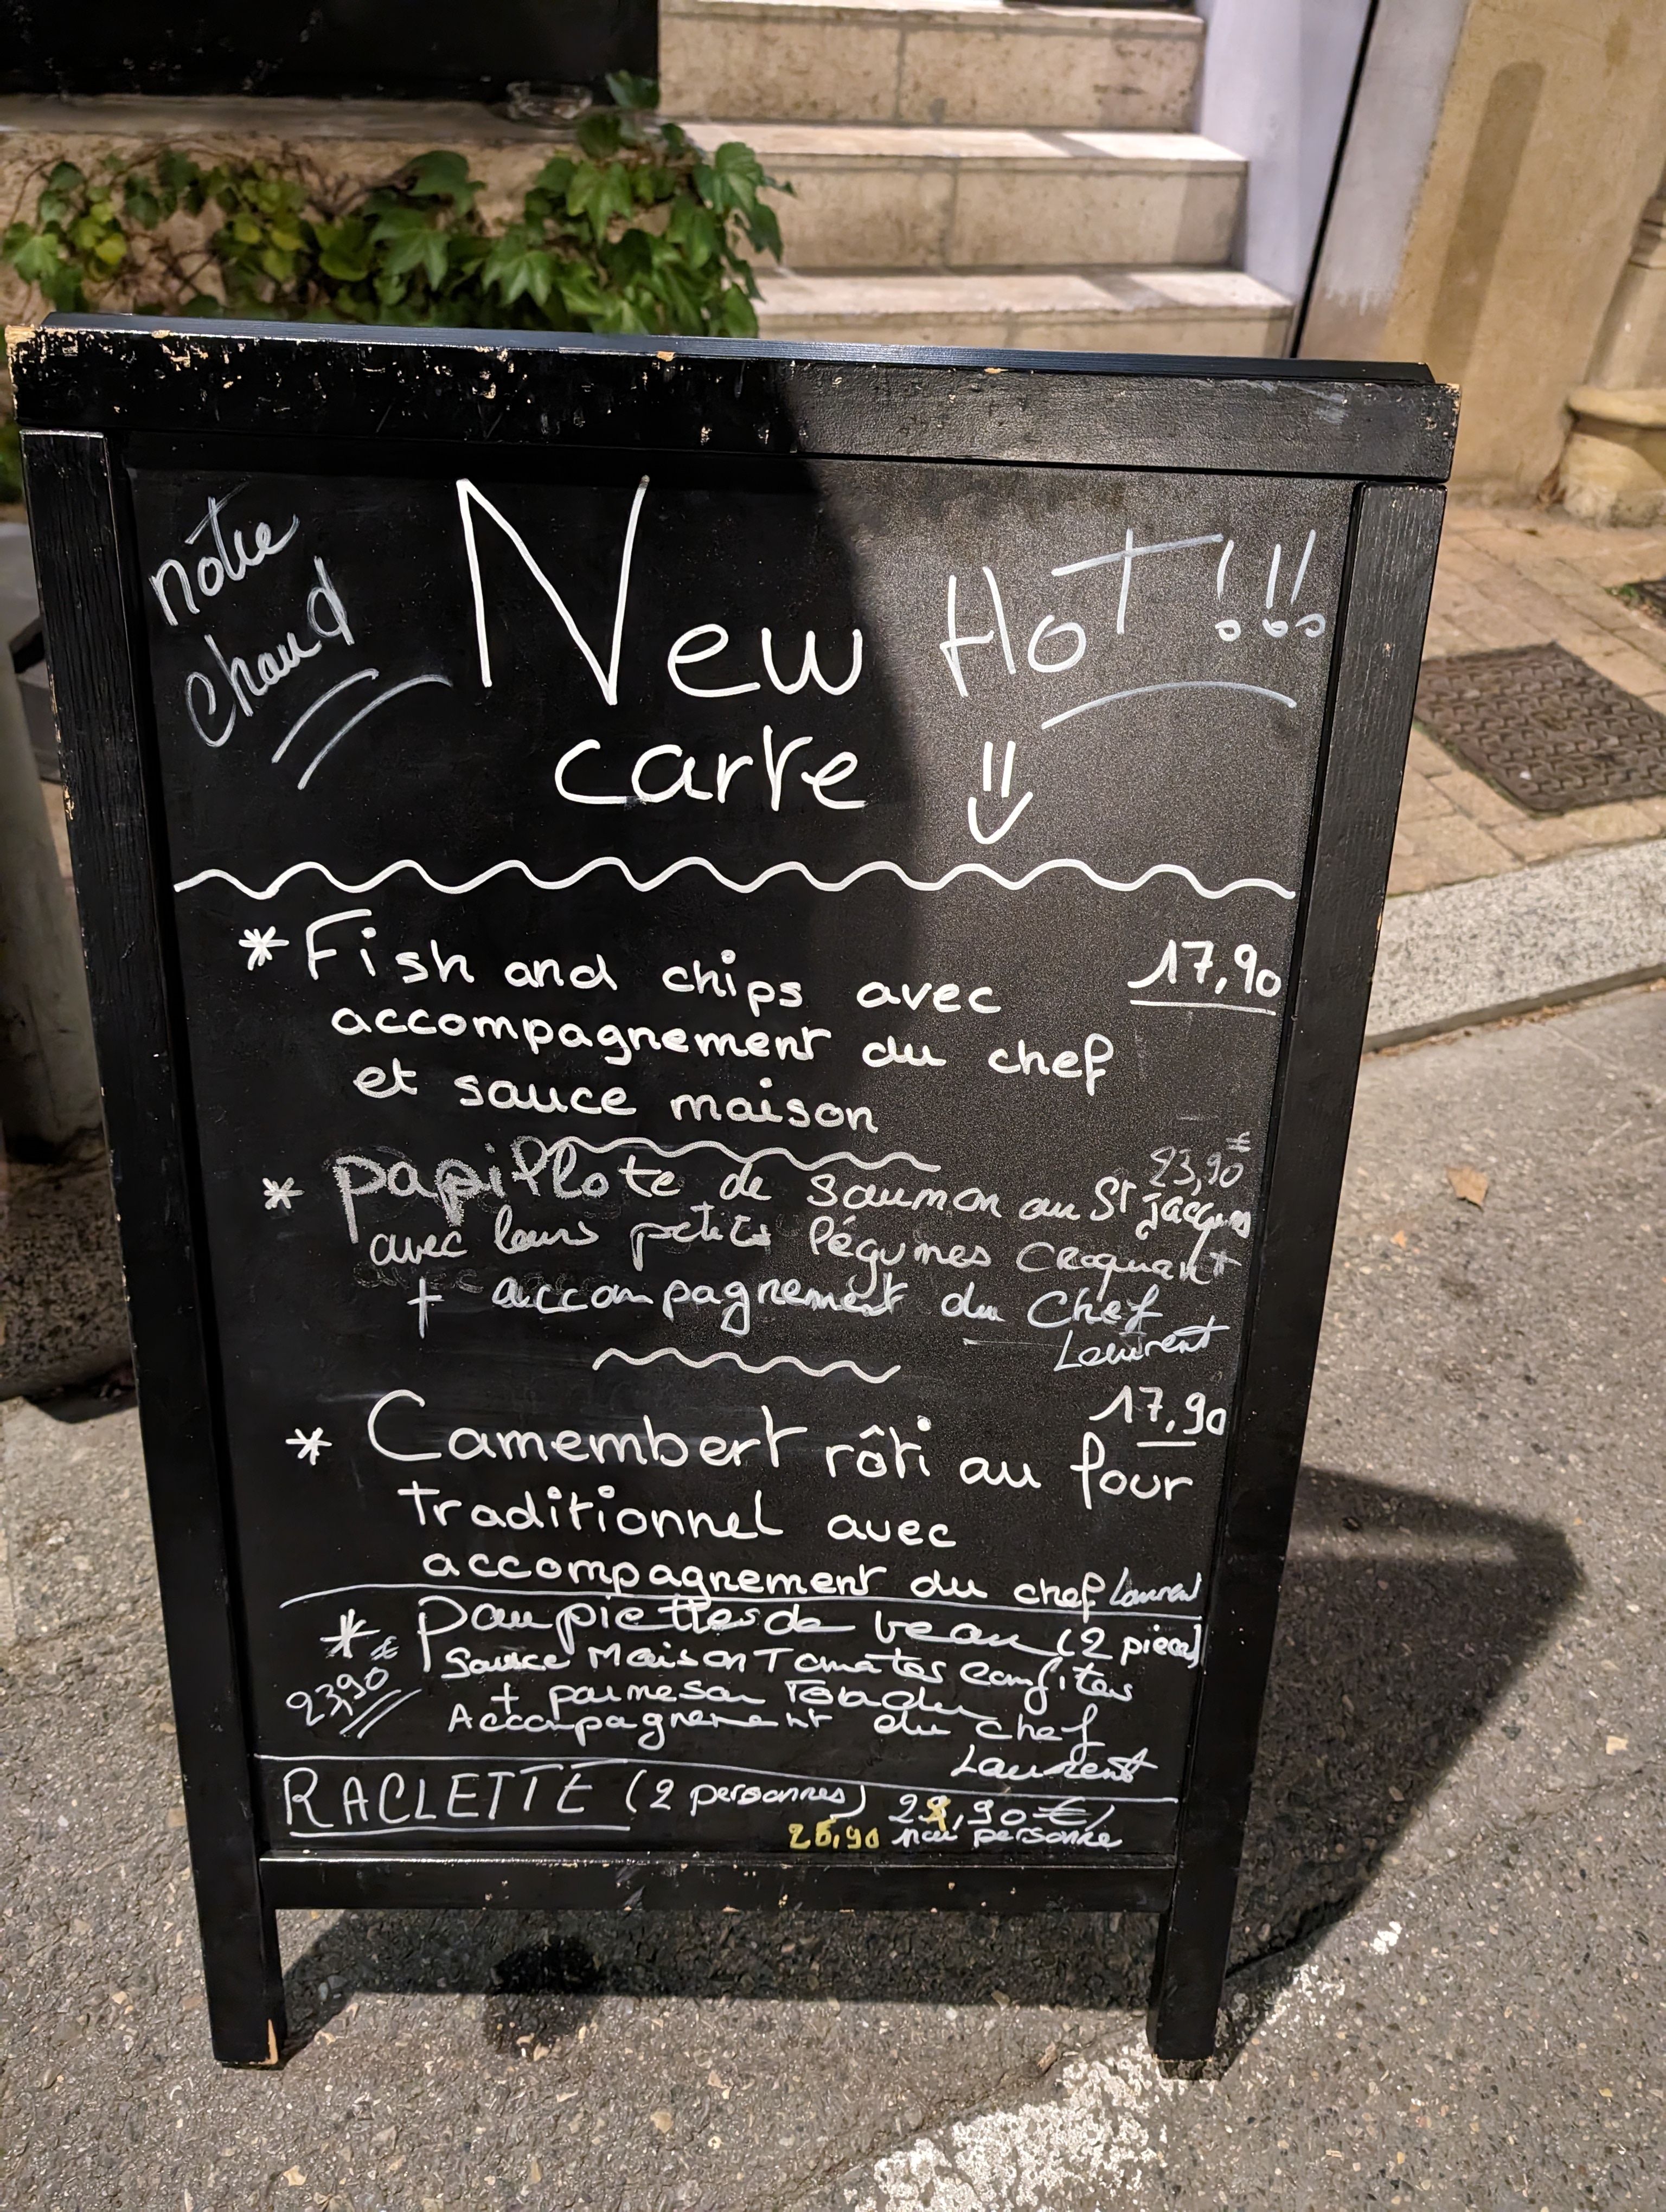 nôtre
chaud
New HOT !!!
carte
* Fish and chips avec 17,90
accompagnement du chef
et sauce maison
23,90€
* papillote de saumon au St jacques
avec leurs petits légumes croquant
+ accompagnement du Chef
Laurent
17,90
* Camembert rôti au four
traditionnel avec
accompagnement du chef Laurent
* paupiettes de veau (2 pièces)
Sauce Maison Tomates confites
23,90€
+ parmesan
Accompagnement du chef
Laurent
RACLETTE (2 personnes) ,90€/
26,90 par personne